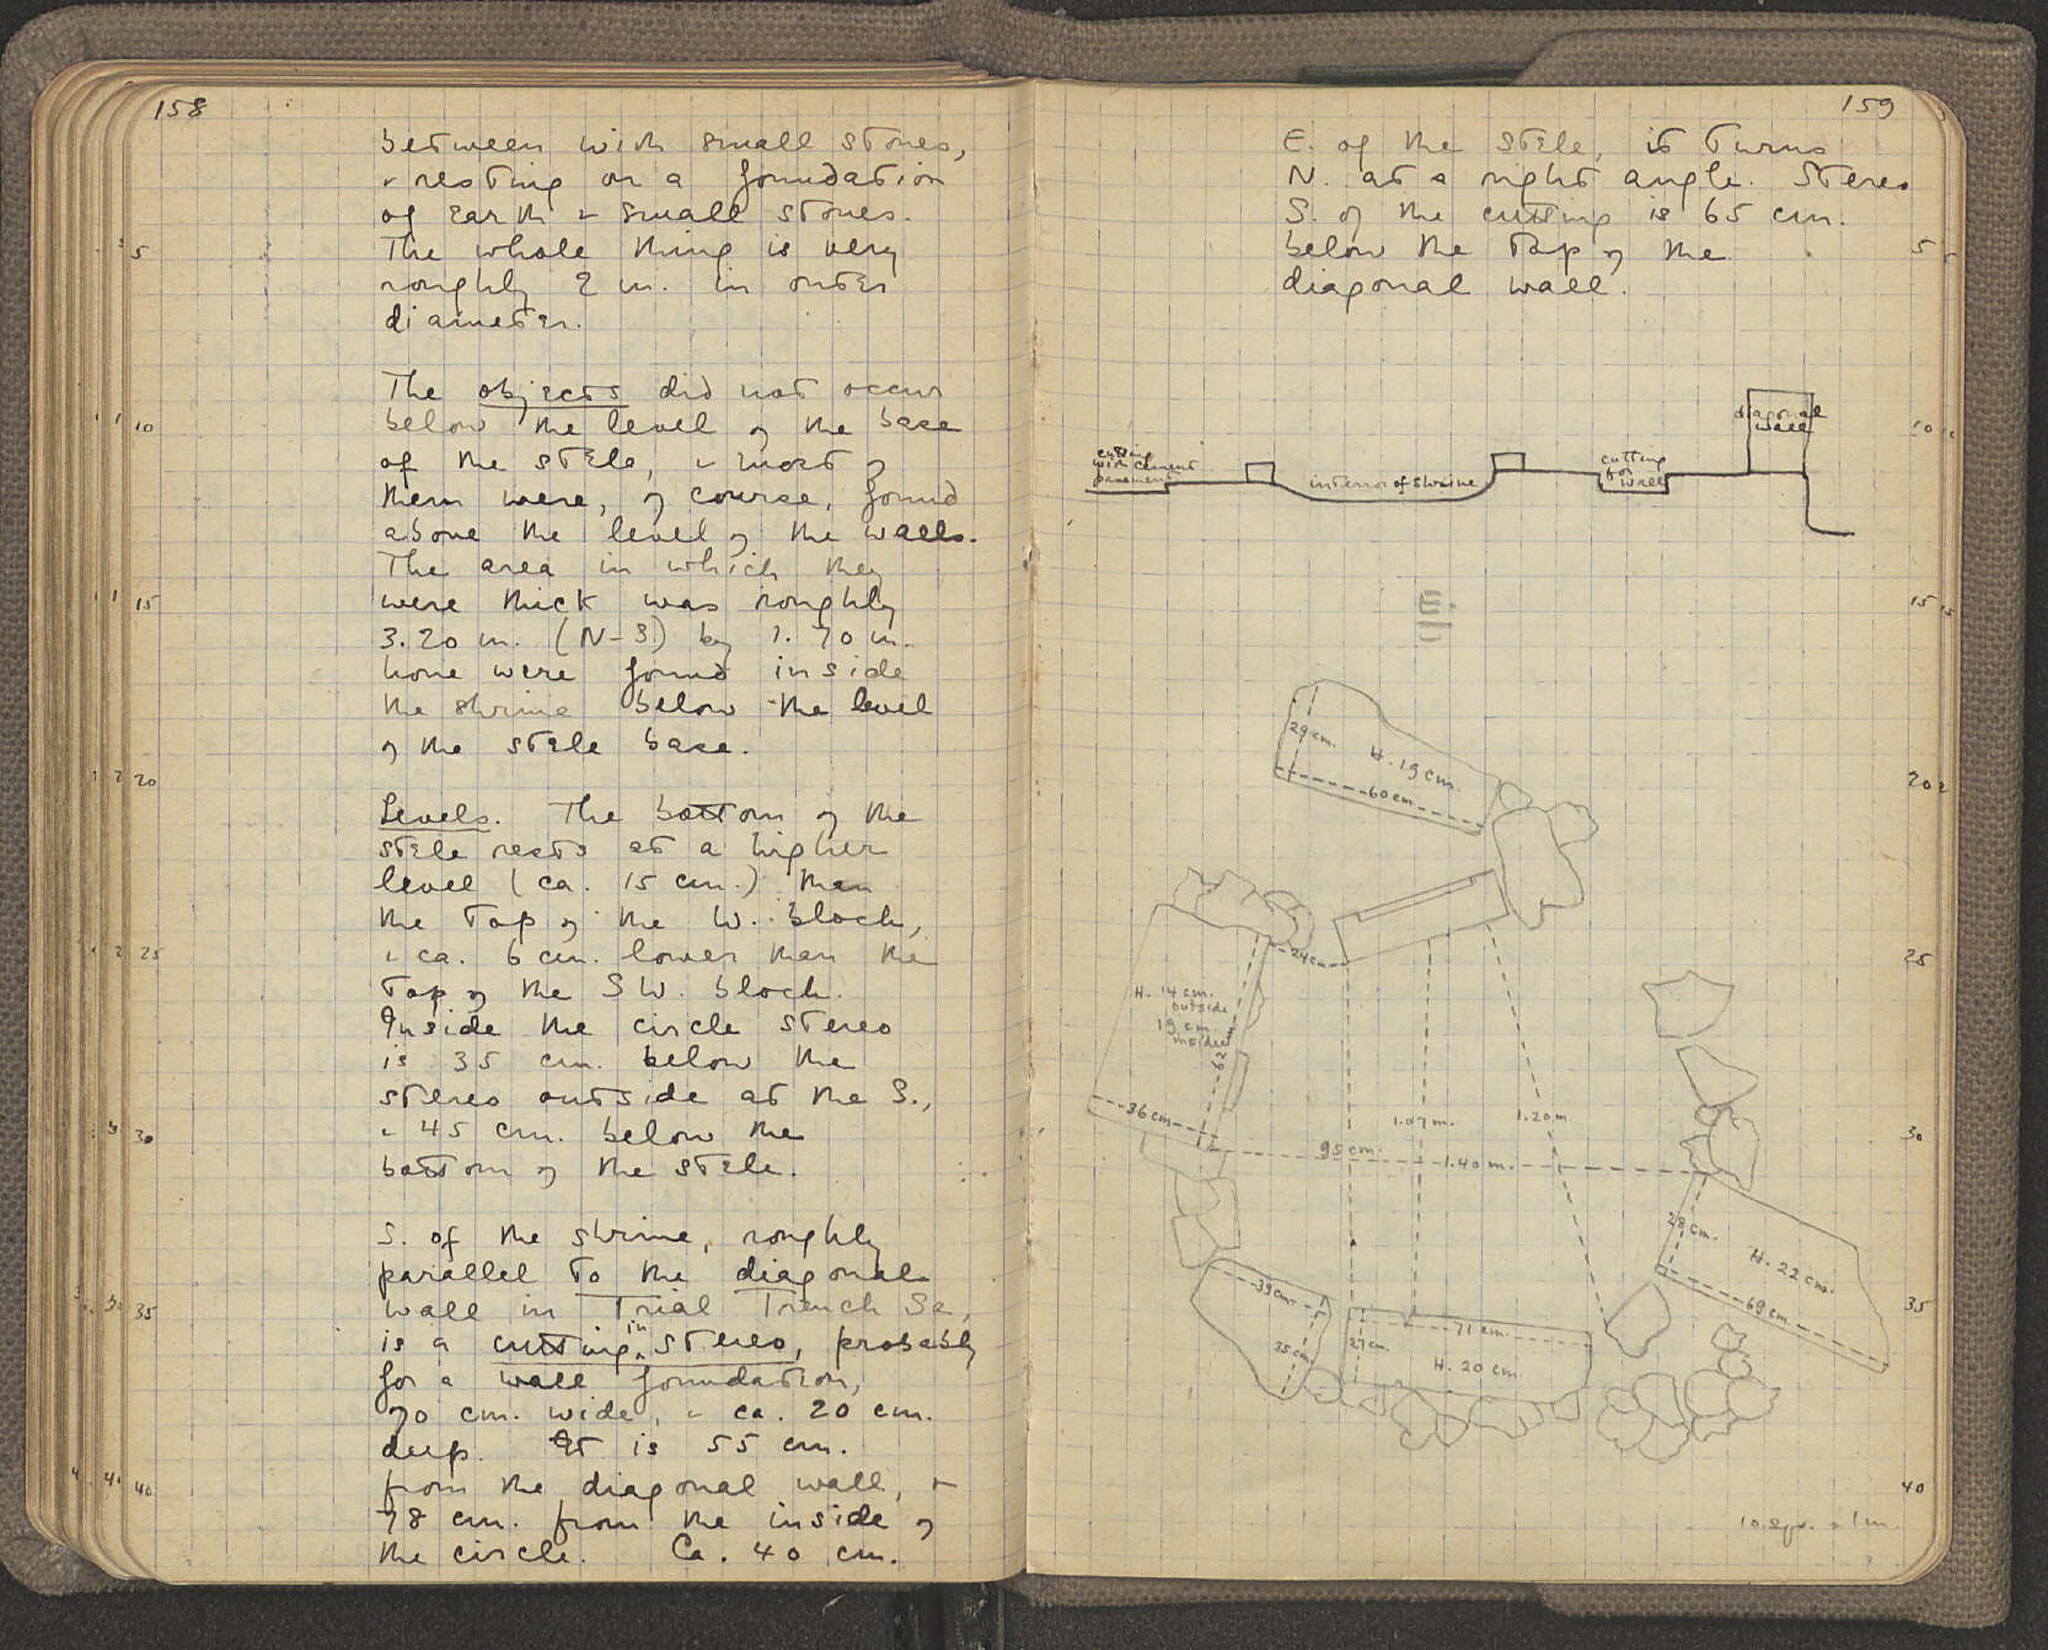 158
between with small stones,
& resting on a foundation
of earth & small stones.
The whole thing is very
roughly 2 m. in outer
diameter.
The objects did not occur
below the level of the base
of the stele, & most of
them were, of course, found
above the level of the walls.
The area in which they
were thick was roughly
3.20 m. (N-S) by 1.70 m.
None were found inside
the shrine below the level
of the stele base.
Levels. The bottom of the
stele rests at a higher
level (ca. 15 cm.) than
the top of the W. block,
& ca. 6 cm. lower than the
top of the SW. block.
Inside the circle stereo
is 35 cm. below the
stereo outside at the S.,
& 45 cm. below the
bottom of the stele.
S. of the shrine, roughly
parallel to the diagonal
wall in Trial Trench Se,
is a cutting in stereo, probably
for a wall foundation,
70 cm. wide, & ca. 20 cm.
deep. It is 55 cm.
from the diagonal wall, &
78 cm. from the inside of
the circle. Ca. 40 cm.
5
10
15
20
25
30
35
40
159
E. of the stele, it turns
N. at a right angle. Stereo
S. of the cutting is 65 cm.
below the top of the
diagonal wall.
cutting
with cement
pavement
interior of shrine
cutting
for
wall
diagonal
wall
29 cm.
H. 19 cm.
60 cm.
24 cm.
H. 14 cm.
outside
19 cm.
inside
62
36 cm.
95 cm.
1.07 m.
1.20 m.
1.40 m.
28 cm.
H. 22 cm.
69 cm.
39 cm.
35 cm.
27 cm.
71 cm.
H. 20 cm.
10 sqr. = 1 m.
5
10
15
20
25
30
35
40